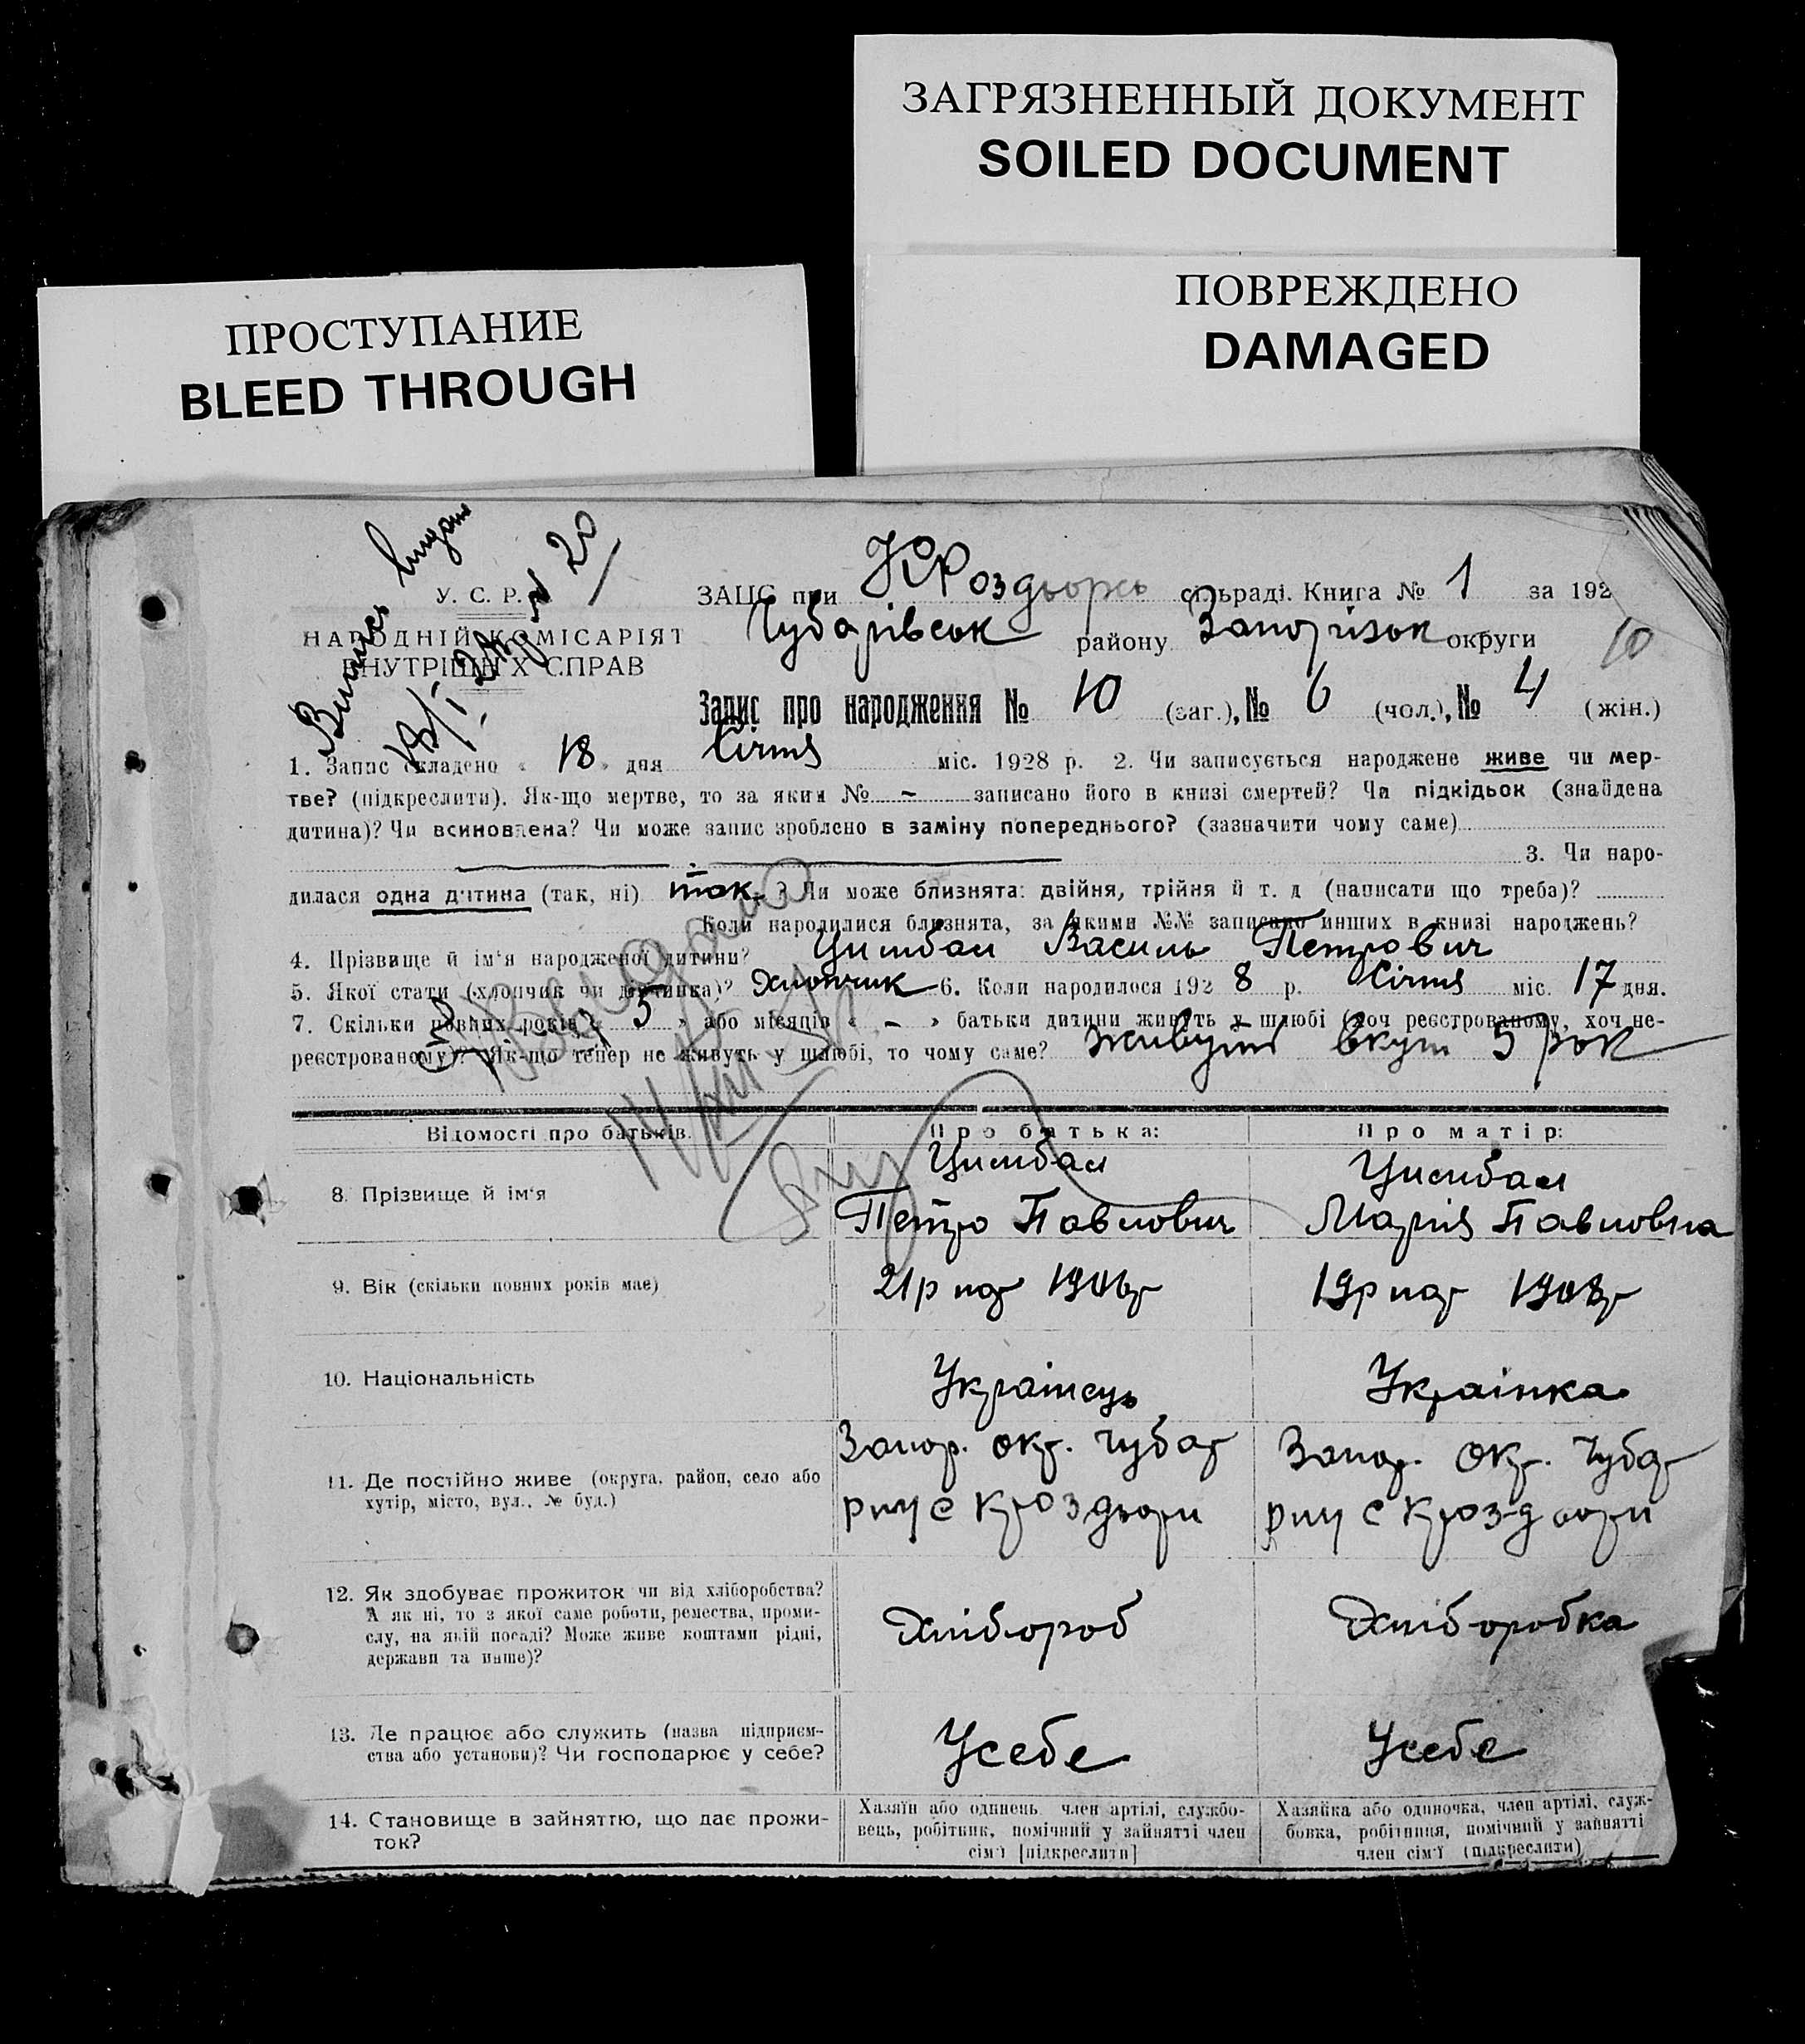 ЗАГРЯЗНЕННЫЙ ДОКУМЕНТ
SOILED DOCUMENT
ПОВРЕЖДЕНО
DAMAGED
ПРОСТУПАНИЕ
BLEED THROUGH
У. С. Р. Р.
НАРОДНІЙ КОМІСАРІЯТ
ВНУТРІШНІХ СПРАВ
ЗАЦС при КРоздорсь сільраді. Книга № 1 за 192
Чубарівськ району Запорізьк округи
10
Запис про народження № 10 (заг.), № 6 (чол.), № 4 (жін.)
1. Запис складено « 18 » дня Січня міс. 1928 р. 2. Чи записується народжене живе чи мер-
тве? (підкреслити). Як-що мертве, то за яким № – записано його в книзі смертей? Чи підкідьок (знайдена
дитина)? Чи всиновлена? Чи може запис зроблено в заміну попереднього? (зазначити чому саме)
3. Чи наро-
дилася одна дитина (так, ні) так ? Чи може близнята: двійня, трійня й т. д (написати що треба)?
Коли народилися близнята, за якими №№ записано инших в книзі народжень?
4. Прізвище й ім'я народженої дитини? Цимбал Василь Петрович
5. Якої стати (хлопчик чи дівчинка)? Хлопчик 6. Коли народилося 192 8 р. Січня міс. 17 дня.
7. Скільки повних років « 5 » або місяців « – » батьки дитини живуть у шлюбі (хоч реєстрованому, хоч не-
реєстрованому)? Як-що тепер не живуть у шлюбі, то чому саме? живуть вкуп 5 рок
Відомості про батьків. Про батька: Про матір:
8. Прізвище й ім'я
Цимбал
Петро Павлович
Цимбал
Марія Павловна
9. Вік (скільки повних років має)
21р 1906р
19р 1908р
10. Національність
Українець
Українка
11. Де постійно живе (округа, район, село або
хутір, місто, вул., № буд.)
Запор. окр. Чубар
рну с Кроздори
Запор. окр. Чубар
рну с Кроздори
12. Як здобуває прожиток чи від хліборобства?
А як ні, то з якої саме роботи, ремества, проми-
слу, на якій посаді? Може живе коштами рідні,
держави та инше)?
Хлібороб
Хліборобка
13. Де працює або служить (назва підприєм-
ства або установи)? Чи господарює у себе?
Усебе
Усебе
14. Становище в зайняттю, що дає прожи-
ток?
Хазяїн або одинець, член артілі, службо-
вець, робітник, помічний у зайнятті член
сім'ї [підкреслити]
Хазяйка або одиночка, член артілі, служ-
бовка, робітниця, помічний у зайнятті
член сім'ї (підкреслити)